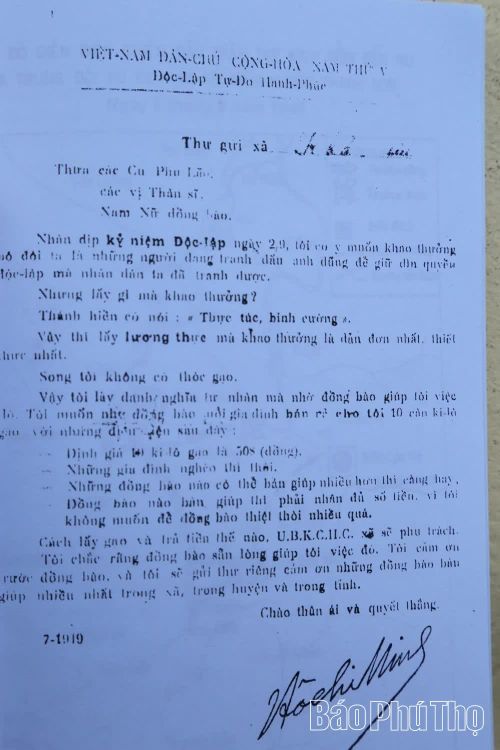 VIỆT-NAM DÂN-CHỦ CỘNG-HÒA NĂM THỨ V
Độc-Lập Tự-Do Hạnh-Phúc
Thư gửi xã
Thưa các Cụ Phụ Lão,
các vị Thân sĩ,
Nam Nữ đồng bào.
Nhân dịp kỷ niệm Độc-lập ngày 2,9, tôi có ý muốn khao thưởng
bộ đội ta là những người đang tranh đấu anh dũng để giữ gìn quyền
độc-lập mà nhân dân ta đã tranh được.
Nhưng lấy gì mà khao thưởng?
Thánh hiền có nói : « Thực túc, binh cường ».
Vậy thì lấy lương thực mà khao thưởng là đản đơn nhất, thiết
thực nhất.
Song tôi không có thóc gạo.
Vậy tôi lấy danh nghĩa tư nhân mà nhờ đồng bào giúp tôi việc
đó. Tôi muốn nhờ đồng bào mỗi gia đình bán rẻ cho tôi 10 cân ki-lô
gạo với những điều kiện sau đây :
— Định giá ki-lô gạo là 50$ (đồng).
— Những gia đình nghèo thì thôi.
— Những đồng bào nào có thể bán giúp nhiều hơn thì càng hay,
— Đồng bào nào bán giúp thì phải nhận đủ số tiền, vì tôi
không muốn để đồng bào thiệt thòi nhiều quá.
Cách lấy gạo và trả tiền thế nào, U.B.K.C.H.C. xã sẽ phụ trách.
Tôi chắc rằng đồng bào sẵn lòng giúp tôi việc đó. Tôi cảm ơn
trước đồng bào, và tôi sẽ gửi thư riêng cảm ơn những đồng bào bán
giúp nhiều nhất trong xã, trong huyện và trong tỉnh.
Chào thân ái và quyết thắng.
7-1949
Hồ Chí Minh
Báo Phú Thọ